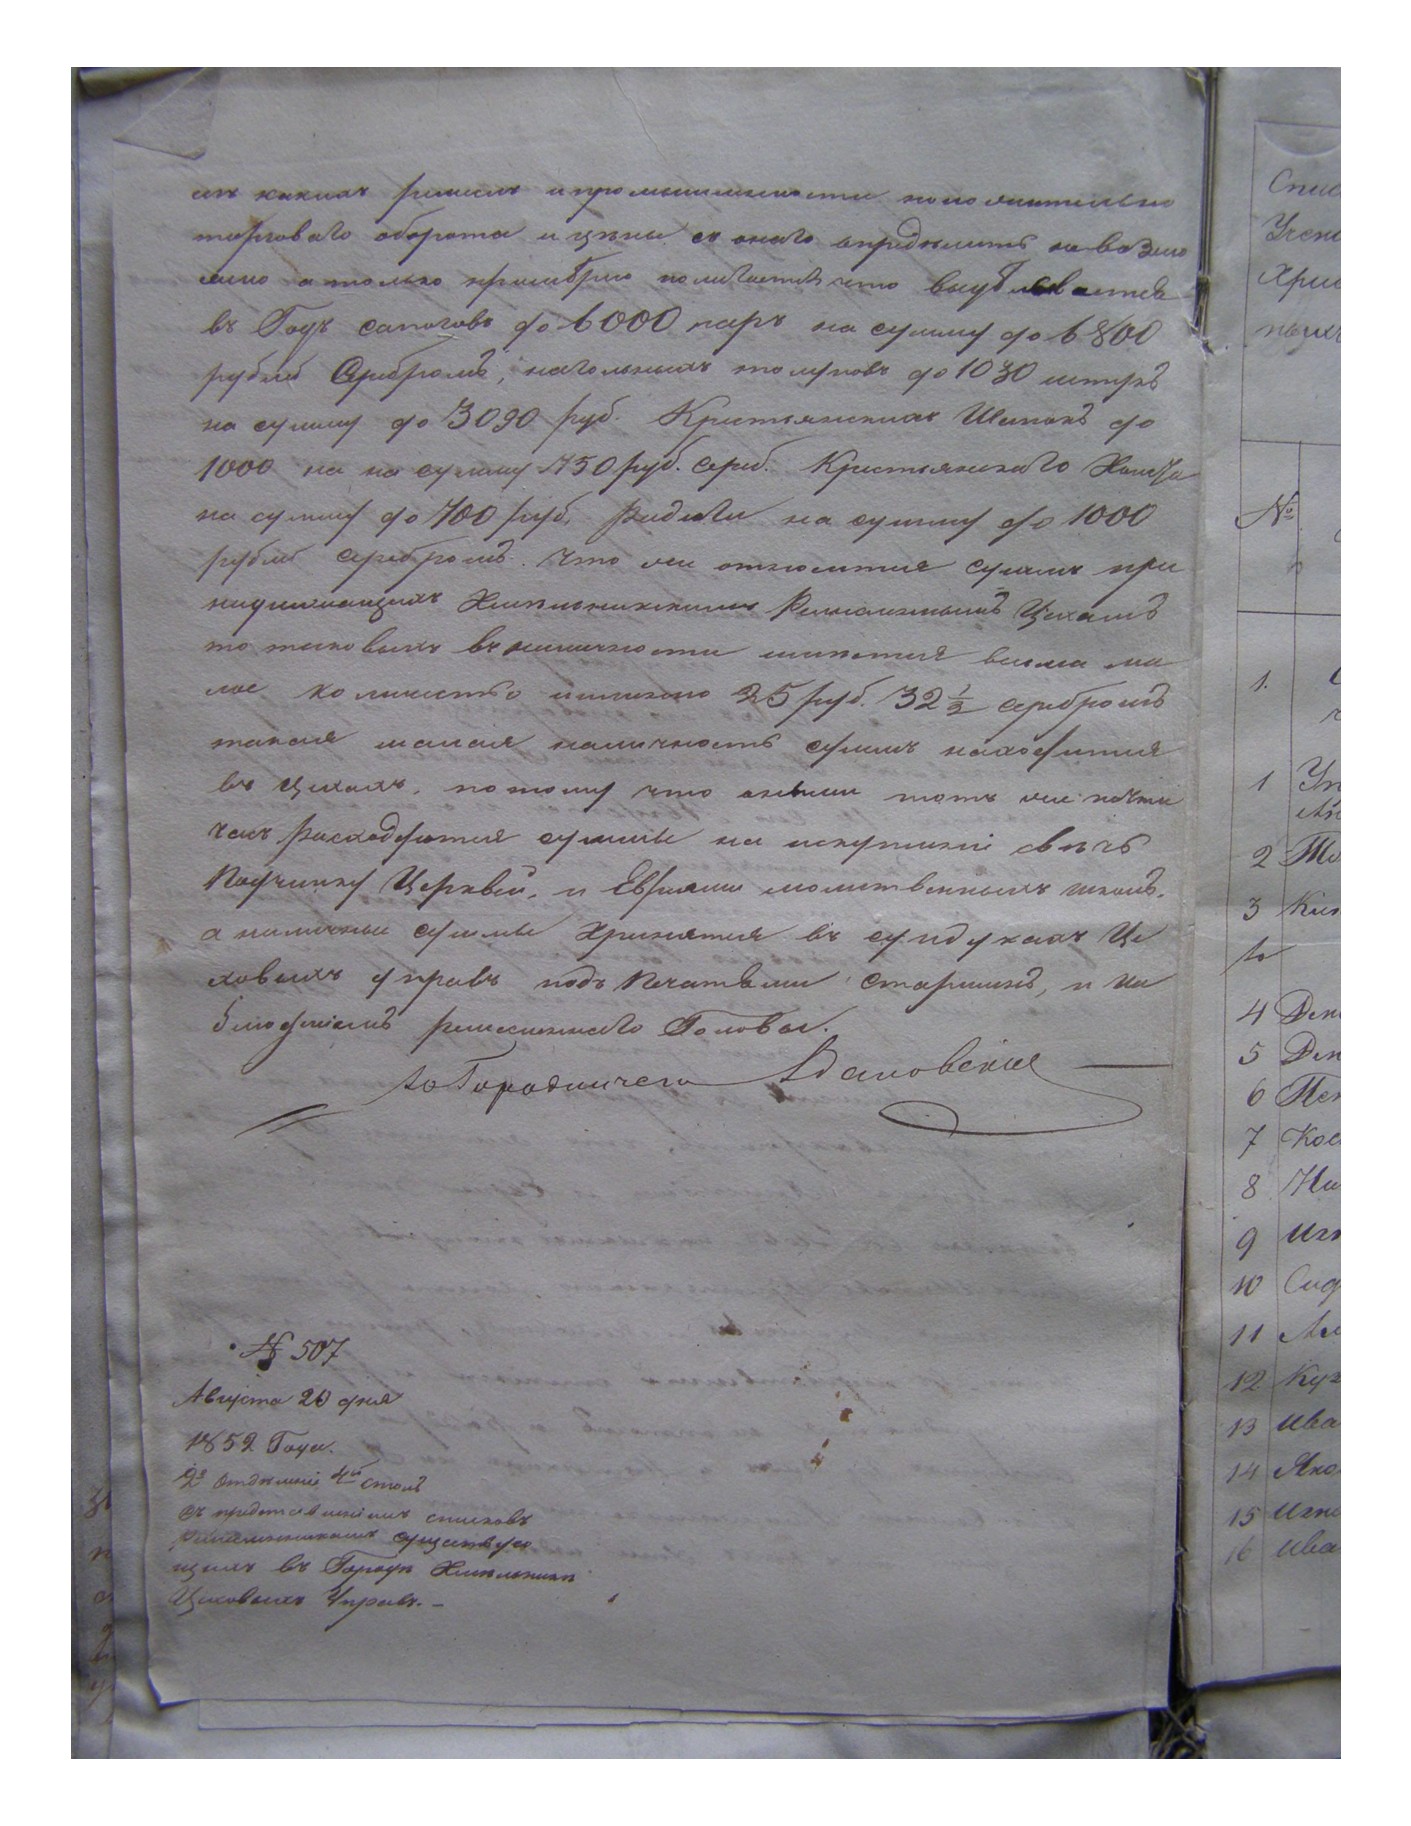 ихъ какихъ ремеслъ и промышлености положительно
торговаго оборота и цѣны съ онаго определить не возмо
жно а только примѣрно полагается что выдѣлывается
въ Годъ сапоговъ до 6000 паръ на сумму до 6800
рублей Серебромъ, нагольныхъ тулуповъ до 1030 штукъ
на сумму до 3090 руб. Крестьянскихъ Шапокъ до
1000 на на сумму 750 руб. сереб. Крестьянскаго Холста
на сумму до 700 руб. на сумму до 1000
рублей серебромъ. Что же относится суммъ при
надлежащихъ Хмельникскимъ Ремесленнымъ Цехамъ
то таковыхъ въ наличности имѣется весьма ма
лое количество именно 25 руб. 32 1/2 серебромъ
такая малая наличность суммъ находится
въ Цехахъ, потому что оными тотъ же почти
часъ расходуются суммы на искупленіе свѣчъ
Починку Церквей, и Евреями молитвенныхъ школъ,
а наличные суммы Хранятся въ сундукахъ Це
ховыхъ управъ подъ Печатьми Старшинъ, и на
блюденіемъ ремесленнаго Головы.
Городничего
№ 507
Августа 20 дня
1852 Года.
2е Отдѣленіе 4й столъ
Съ представленіемъ списковъ
ремесленникамъ существую
щимъ въ Городѣ Хмельникѣ
Цеховыхъ Управъ. –
Спис
Учен
Хрис
ныхъ
№
1.
1 Уп
2
3 Кип
4 Ден
5 Ден
6 Пет
7 Кос
8
9 Игн
10 Сид
11
12 Куз
13 Ива
14 Яко
15 Игна
16 Ива